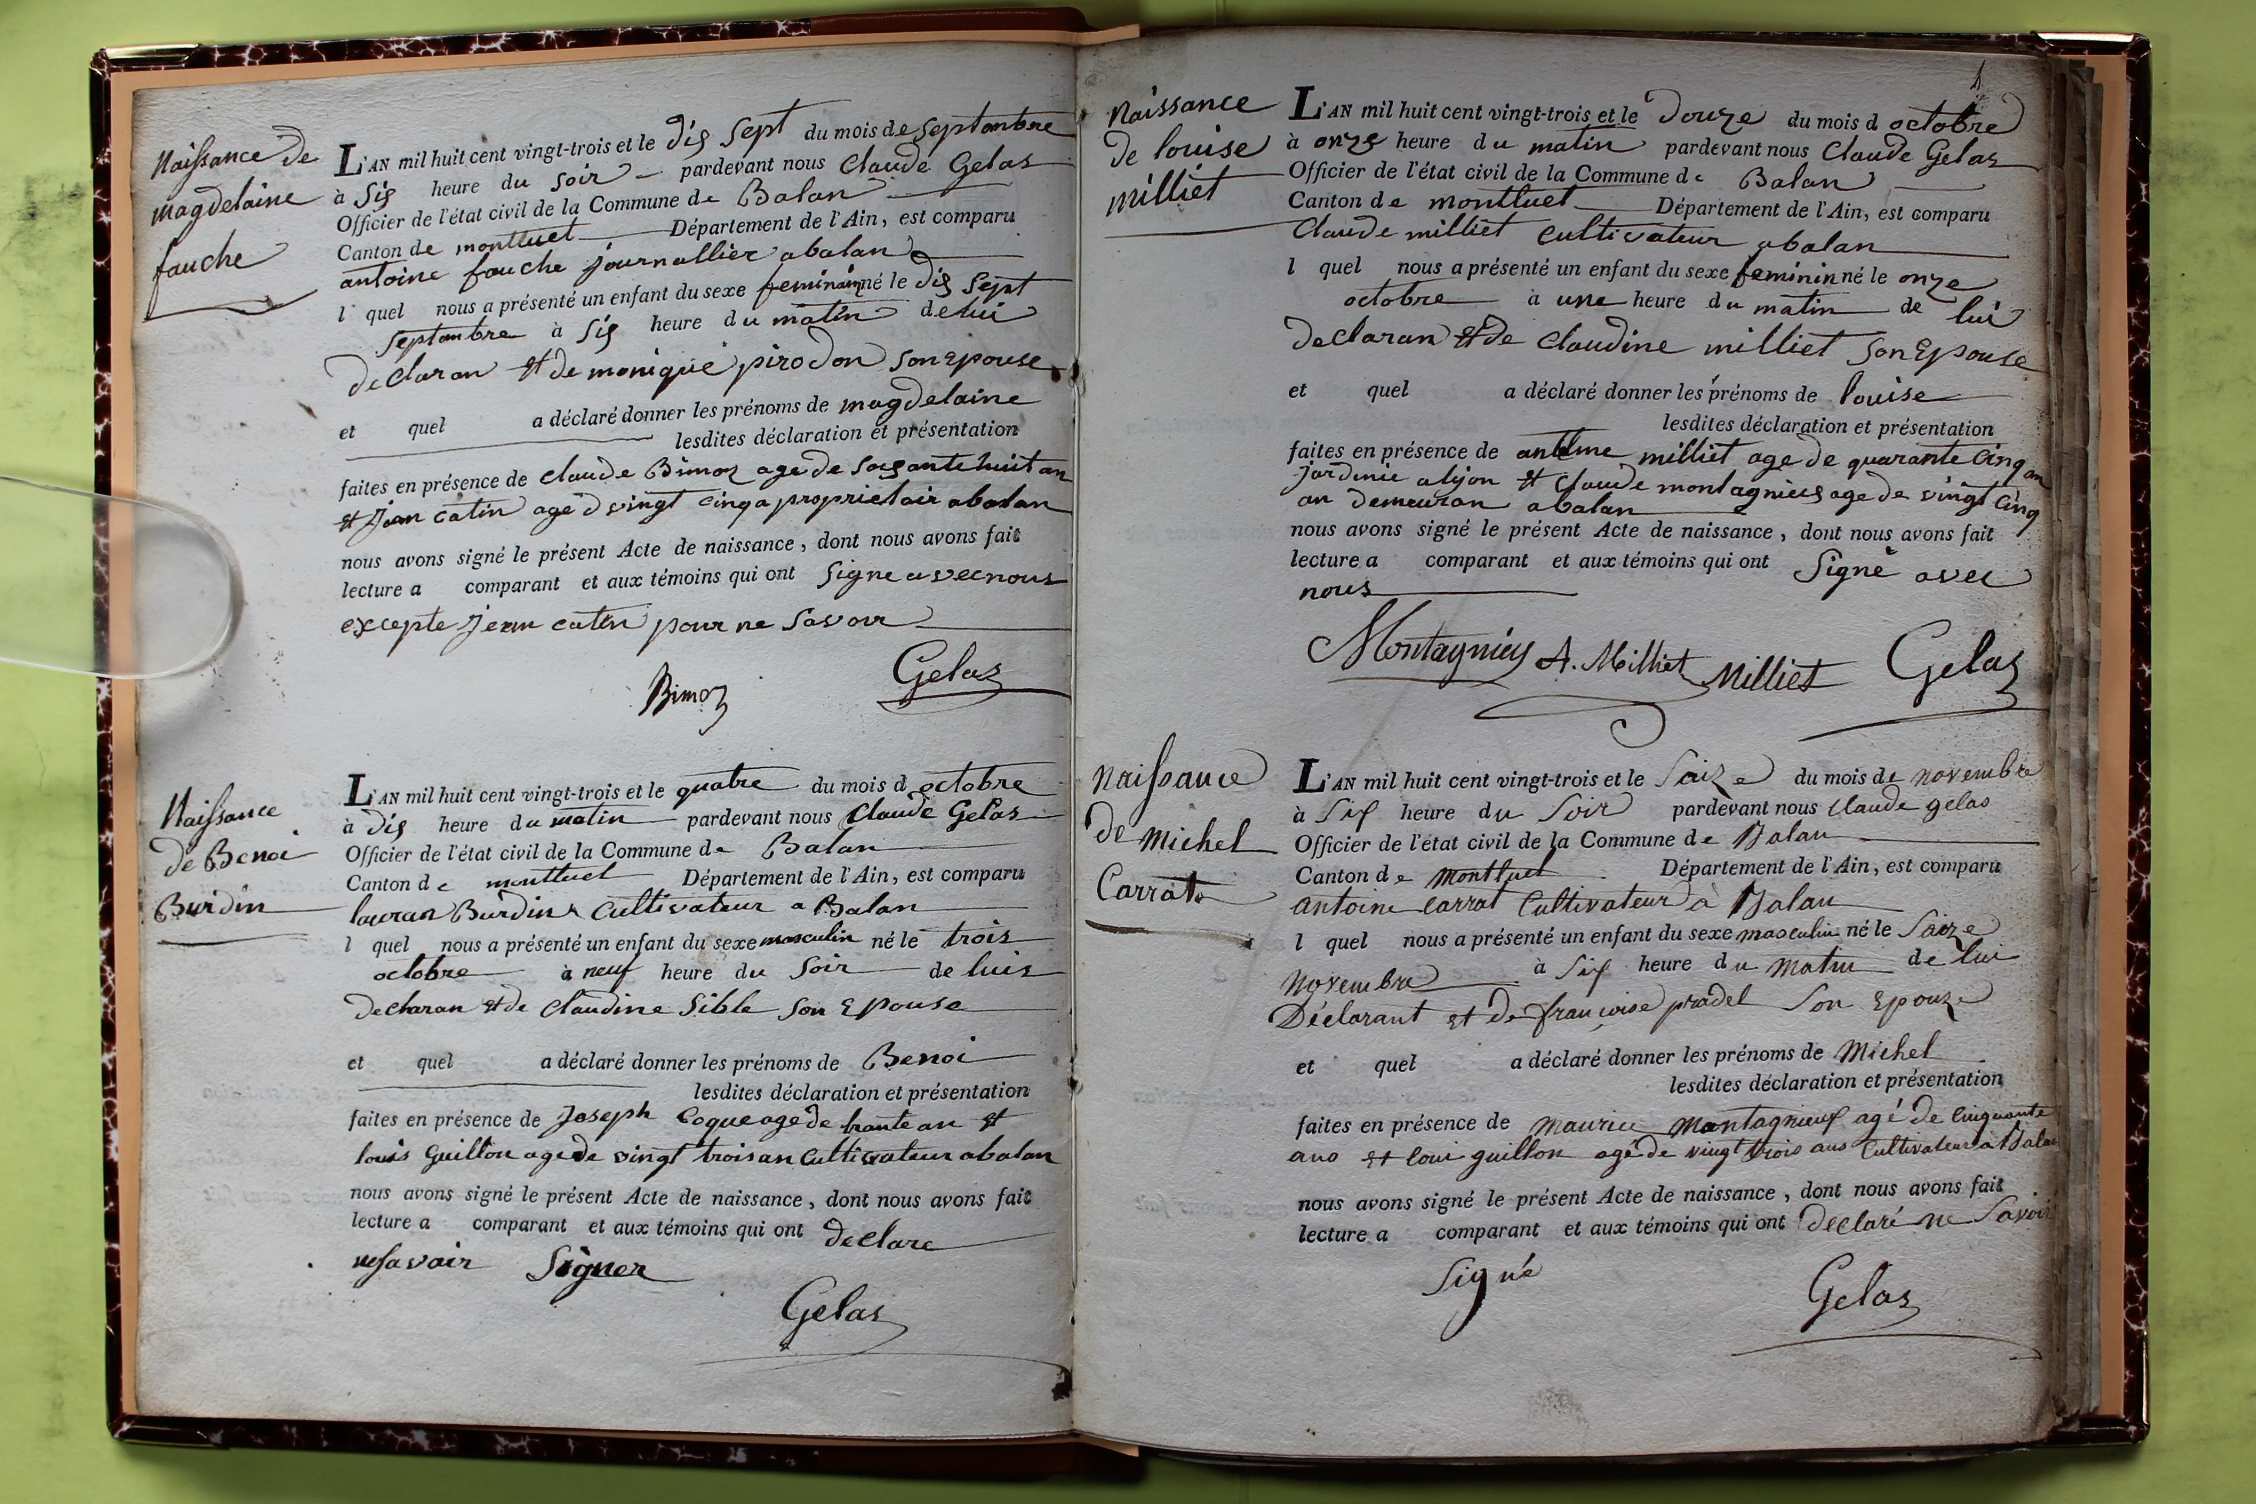 Naissance de
magdelaine
fauche
L'AN mil huit cent vingt-trois et le dis sept du mois de septembre
à Sis heure du soir pardevant nous Claude Gelas
Officier de l'état civil de la Commune de Balan
Canton de montluel Département de l'Ain, est comparu
antoine fauche journallier a balan
l quel nous a présenté un enfant du sexe feminain né le dis sept
septembre à Sis heure du matin de lui
declaran et de monique pirodon son Epouse
et quel a déclaré donner les prénoms de magdelaine
lesdites déclaration et présentation
faites en présence de claude Bimoz age de soisante huit an
et Jean catin age d vingt cinq a proprietair a balan
nous avons signé le présent Acte de naissance, dont nous avons fait
lecture a comparant et aux témoins qui ont signe avec nous
excepte Jean catin pour ne savoir
Bimoz Gelas
Naissance
de Benoi
Burdin
L'AN mil huit cent vingt-trois et le quatre du mois d octobre
à dis heure du matin pardevant nous Claude Gelas
Officier de l'état civil de la Commune de Balan
Canton de montluel Département de l'Ain, est comparu
lauran Burdin cultivateur a Balan
l quel nous a présenté un enfant du sexe masculin né le trois
octobre à neuf heure du soir de luis
decharan et de claudine Sible son Epouse
et quel a déclaré donner les prénoms de Benoi
lesdites déclaration et présentation
faites en présence de Joseph Coque age de trante an et
louis Guillon age de vingt trois an cultivateur a balan
nous avons signé le présent Acte de naissance, dont nous avons fait
lecture a comparant et aux témoins qui ont declare
ne savoir Signer
Gelas
Naissance
de louise
milliet
L'AN mil huit cent vingt-trois et le douze du mois d octobre
à onze heure du matin pardevant nous Claude Gelas
Officier de l'état civil de la Commune de Balan
Canton de montluel Département de l'Ain, est comparu
Claude milliet cultivateur a balan
l quel nous a présenté un enfant du sexe feminin né le onze
octobre à une heure du matin de lui
declaran et de claudine milliet son Epouse
et quel a déclaré donner les prénoms de louise
lesdites déclaration et présentation
faites en présence de milliet age de quarante cinq an
jardinie a lyon et claude montagnieus age de vingt cinq
an demeuran a balan
nous avons signé le présent Acte de naissance, dont nous avons fait
lecture a comparant et aux témoins qui ont Signé avec
nous
Montagnieus A. Milliet Milliet Gelas
Naissance
de Michel
Carrat
L'AN mil huit cent vingt-trois et le Saize du mois de novembre
à Six heure du Soir pardevant nous Claude gelas
Officier de l'état civil de la Commune de Balan
Canton de Montluel Département de l'Ain, est comparu
antoine Carrat Cultivateur à Balan
l quel nous a présenté un enfant du sexe masculin né le Saize
Novembre à Six heure du Matin de lui
Déclarant et de françoise pradel Son Epouze
et quel a déclaré donner les prénoms de Michel
lesdites déclaration et présentation
faites en présence de maurice Montagnieux agé de Cinquante
ans et Loui guillon agé de vingt trois ans Cultivateur à Balan
nous avons signé le présent Acte de naissance, dont nous avons fait
lecture a comparant et aux témoins qui ont declaré ne Savoir
Signé
Gelas